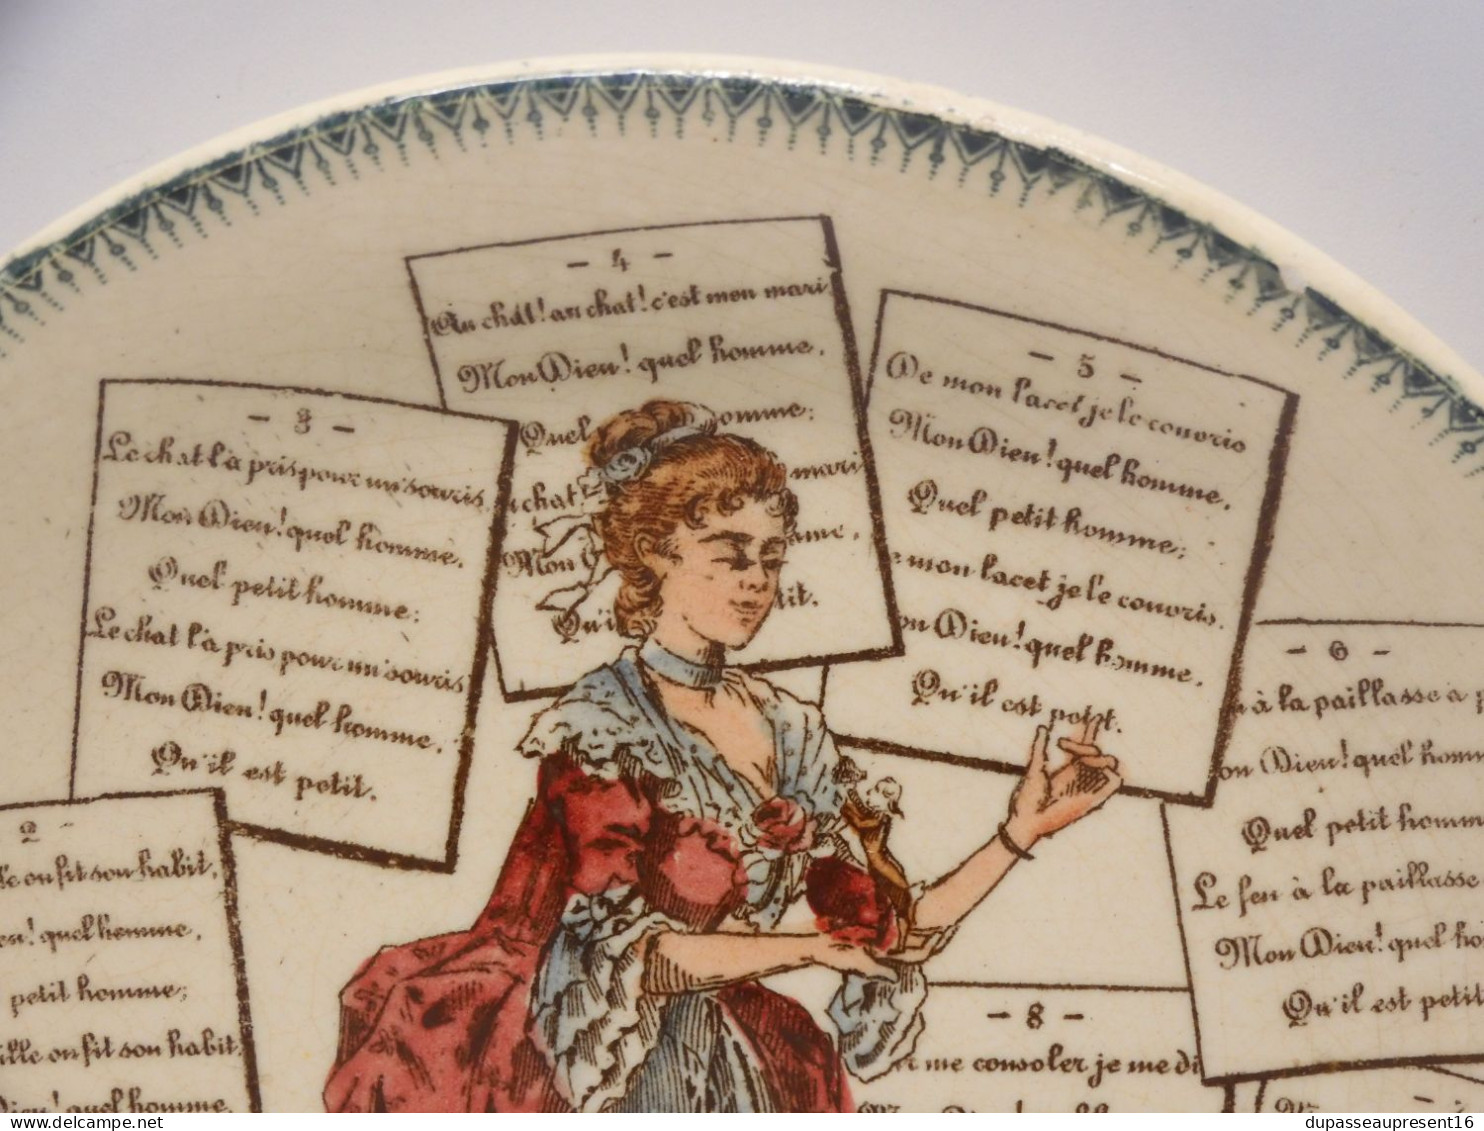 - 4 -
Au chat! au chat! c'est mon mari
Mon Dieu! quel homme,
Quel omme:
chat mari
Mon ame,
Qu'i tit.
- 5 -
De mon lacet je le couvris
Mon Dieu! quel homme,
Quel petit homme;
e mon lacet je le couvris.
on Dieu! quel homme,
Qu'il est petit.
- 3 -
Le chat l'a pris pour un'souris
Mon Dieu! quel homme,
Quel petit homme:
Le chat l'a pris pour un'souris
Mon Dieu! quel homme,
Qu'il est petit.
- 6 -
à la paillasse à p
on Dieu! quel homm
Quel petit homm
Le feu à la paillasse
Mon Dieu! quel ho
Qu'il est petit
2 -
le on fit son habit,
eu! quel homme,
petit homme;
ille on fit son habit,
Dieu! quel homme,
- 8 -
r me consoler je me di
Dieu!
dupasseaupresent16